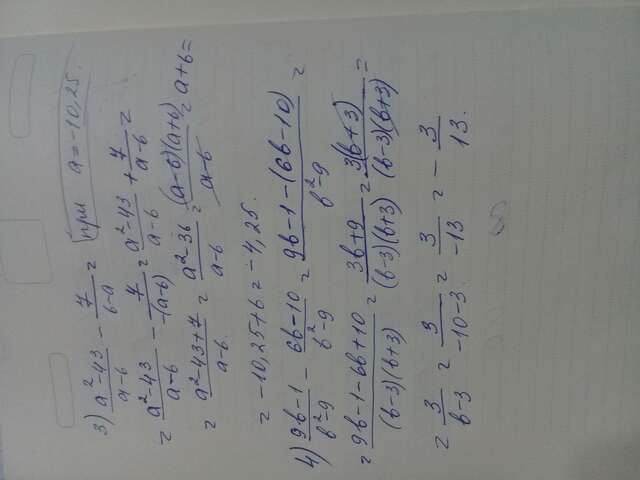 3) (a²-43)/(a-6) - 7/(6-a) = при a=-10,25.
= (a²-43)/(a-6) - 7/(-(a-6)) = (a²-43)/(a-6) + 7/(a-6) =
= (a²-43+7)/(a-6) = (a²-36)/(a-6) = ((a-6)(a+6))/(a-6) = a+6 =
= -10,25+6 = -4,25.
4) (9b-1)/(b²-9) - (6b-10)/(b²-9) = (9b-1-(6b-10))/(b²-9) =
= (9b-1-6b+10)/((b-3)(b+3)) = (3b+9)/((b-3)(b+3)) = (3(b+3))/((b-3)(b+3)) =
= 3/(b-3) = 3/(-10-3) = 3/(-13) = - 3/13.